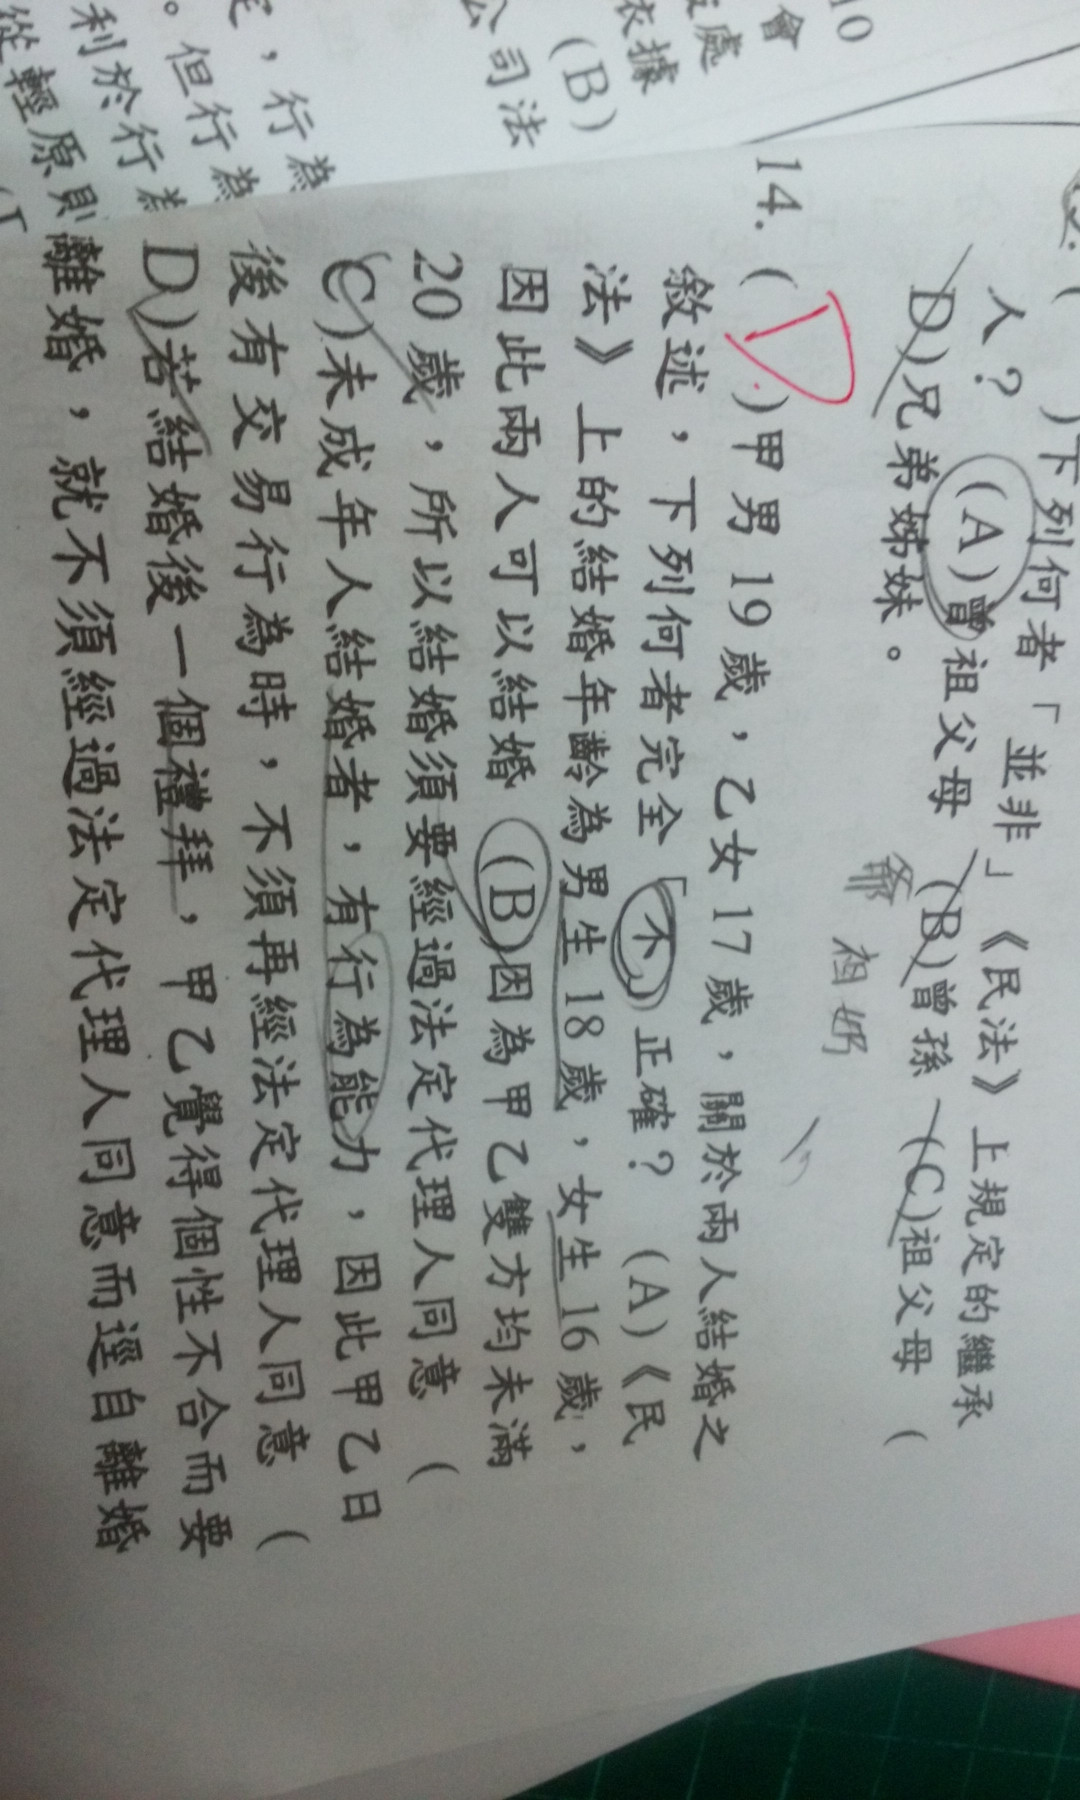 10
會
處
依據
(B)
公司法
，行為
。但行為
利於行為
從輕原則
( )下列何者「並非」《民法》上規定的繼承
人？ (A)曾祖父母 (B)曾孫 (C)祖父母 (
D)兄弟姊妹。
爺 祖 奶
14. ( D )甲男19歲，乙女17歲，關於兩人結婚之
敘述，下列何者完全「不」正確？ (A)《民
法》上的結婚年齡為男生18歲，女生16歲，
因此兩人可以結婚 (B)因為甲乙雙方均未滿
20歲，所以結婚須要經過法定代理人同意 (
C)未成年人結婚者，有行為能力，因此甲乙日
後有交易行為時，不須再經法定代理人同意 (
D)若結婚後一個禮拜，甲乙覺得個性不合而要
離婚，就不須經過法定代理人同意而逕自離婚